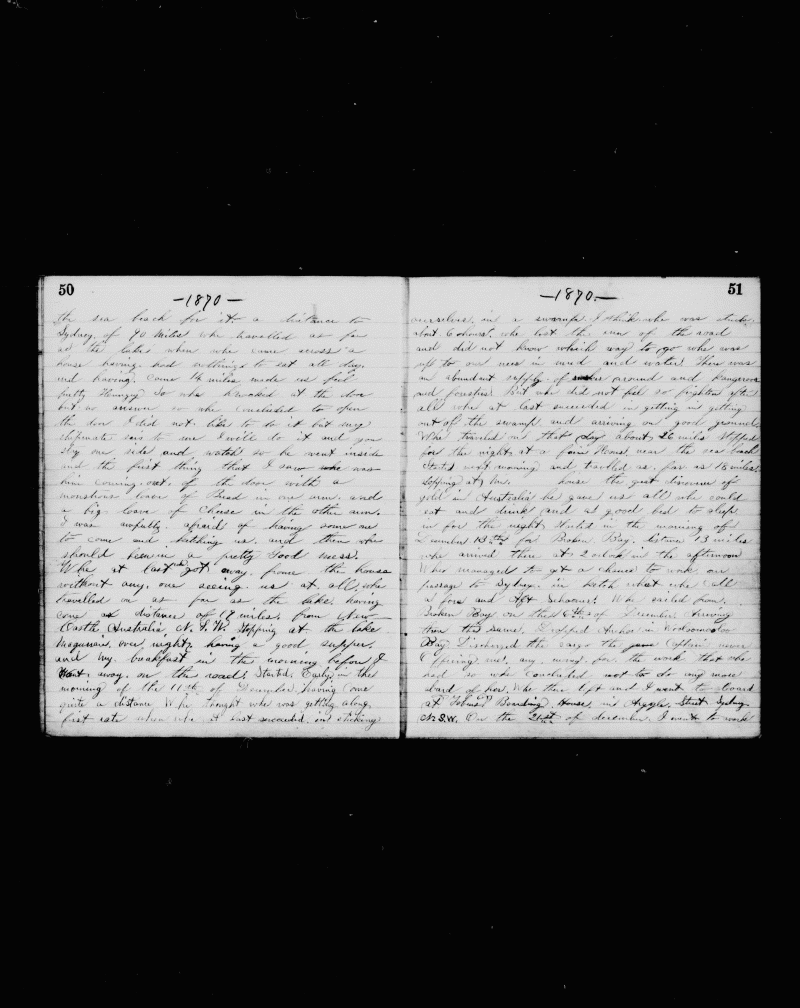 50
—1870—
the sea beach for it. a distance to
Sydney, of 90 Miles whe travelled as far
as the lake when whe came across a
house having had nothing to eat all day.
and having. Come 14 miles made us feel
pretty Hungry So whe knocked at the door
but no answer so whe concluded to open
the door I did not like to do it but my
shipmate says to me I will do it and you
stay one side and watch so he went inside
and the first thing that I saw whe was
him coming out of the door with a
monstrous loave of Bread in one arm. and
a big loave of Cheese in the other arm.
I was awfully afraid of having some one
to come and katching us. and then whe
should been in a pretty Good mess.
Whe at last got away. from the house
without any. one seeing us at all, whe
travelled on as far as the lake, having
come a distance of 17 miles. from New
Castle, Australia, N. S. W. Stopping at the lake
Maquarie, over night, having a good supper.
and my breakfast in the morning before I
Went away on the road. Started Early, in the
morning of the 11th of December. having Come
quite a distance Whe thought whe was getting along
first rate when whe at last succeeded in sticking
51
—1870—
ourselves, in a swamp. I think whe was
about 6 hours. whe lost the run of the road
and did not know which way to go whe was
up to our neck in mud and water. There was
an abundant supply of around and Kangaroos
and But whe did not feel so frighten after
all whe at last succeeded in getting in getting
out of the swamp and arriving on good ground
Whe traveled on that day about 26 miles stopped
for the night, at a farm House, near the sea beach
Started next morning and travelled as far as 18 miles,
stopping at Mr. house the great discoverer of
gold in Australia he gave us all whe could
eat and drink and as good bed to sleep
in for the night, Started in the morning off
December 13th for Broken Bay. distance 13 miles
whe arrived there at 2 oclock in the afternoon
Whe managed to get a chance to work our
passage to Sydney. in a ketch what whe call
a fore and Aft Schooner. Whe sailed from.
Broken Bay on the of December Arriving
there the same. Dropped Anchor in
Bay Discharged the cargo the Captain never
Offering us, any money. for the work that whe
had so whe Concluded not to do any more
aboard of her. Whe then left and I went to Board
at Boarding House, in Argyle, Street Sydney
N.S.W. On the 21st of december. I went to work